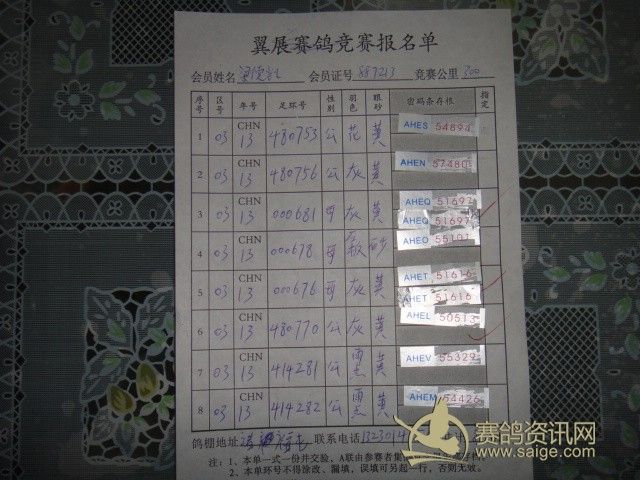 翼展赛鸽竞赛报名单
会员姓名 会员证号 887213 竞赛公里 300
序号 区号 年号 足环号 性别 羽色 眼砂 密码条存根 指定
1 03 CHN 13 480753 公 花 黄 AHES 54894
2 03 CHN 13 480756 公 灰 黄 AHEN 57480
3 03 CHN 13 000681 母 灰 黄 AHEQ 51697
AHEQ 51697
4 03 CHN 13 000678 母 砂 AHEO 55101
5 03 CHN 13 000676 母 灰 黄 AHET 51616
AHET 51616
6 03 CHN 13 480770 公 灰 黄 AHEL 50513
7 03 CHN 13 414281 公 黑 黄 AHEV 55329
8 03 CHN 13 414282 公 黑 黄 AHEM 54426
鸽棚地址 联系电话
注：1、本单一式一份并交验，A联由参赛者集
2、本单环号不得涂改、漏填，误填可另起一行，否则无效。
赛鸽资讯网
www.saige.com